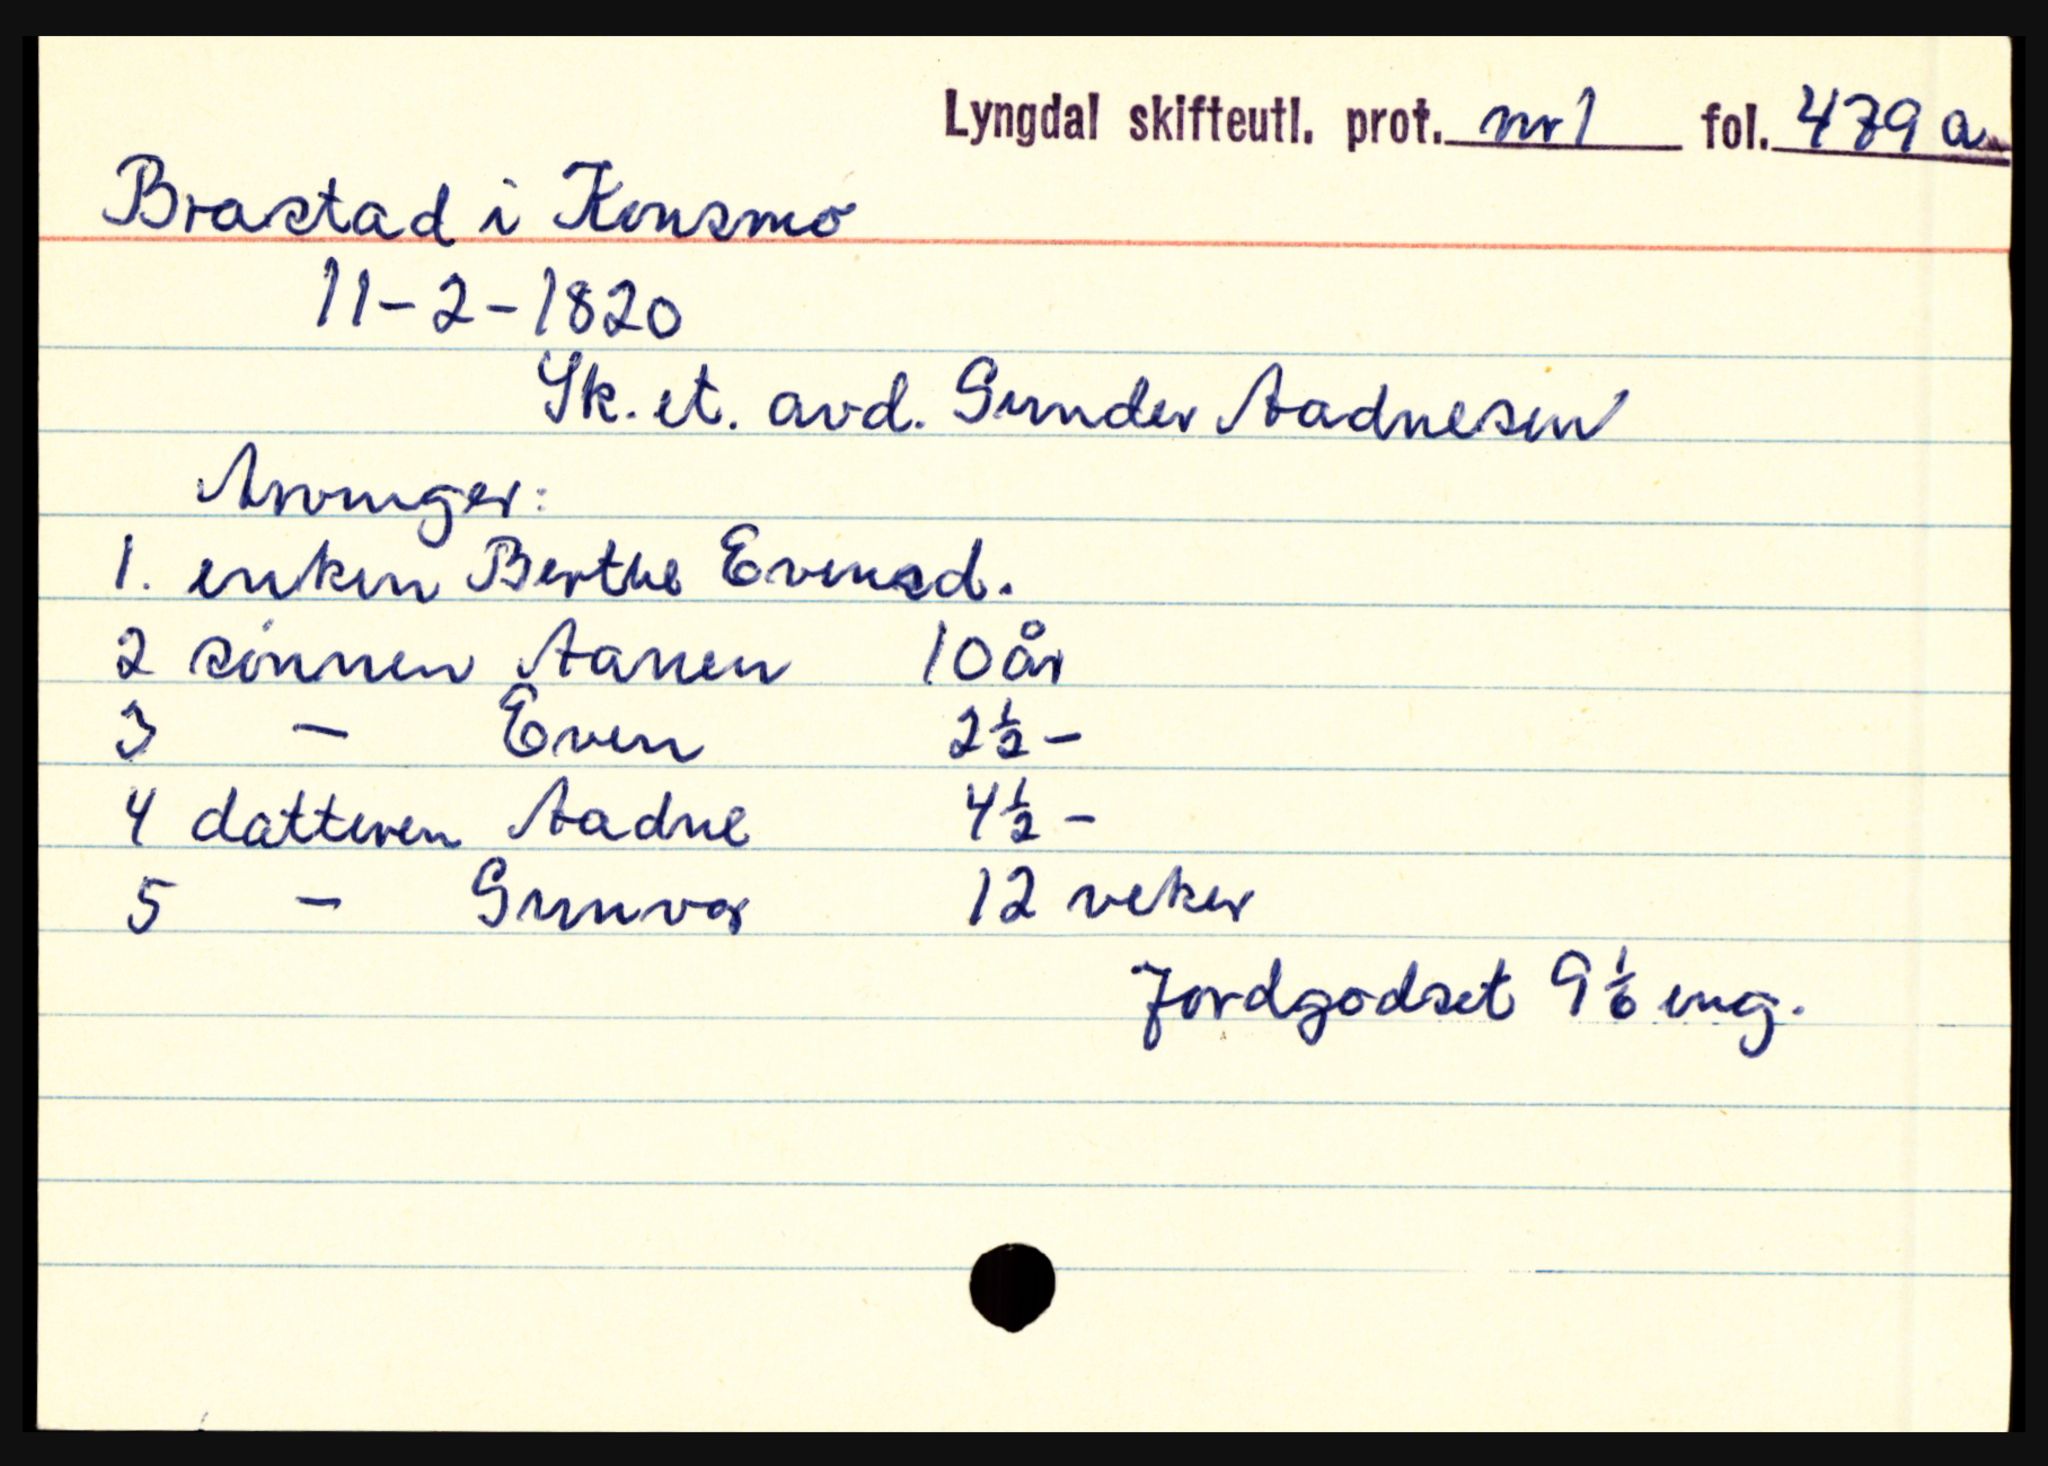 Lyngdal skifteutl. prot. nr 1 fol. 479 a
Brastad i Konsmo
11-2-1820
Sk. et. avd. Gunder Aadnesen
Arvinger:
1. enken Berthe Evensd.
2 sønnen Aanen 10 år
3 - Even 2½ -
4 datteren Aadne 4½ -
5 - Gunvor 12 veker
Jordgodset 9 1/6 eng.